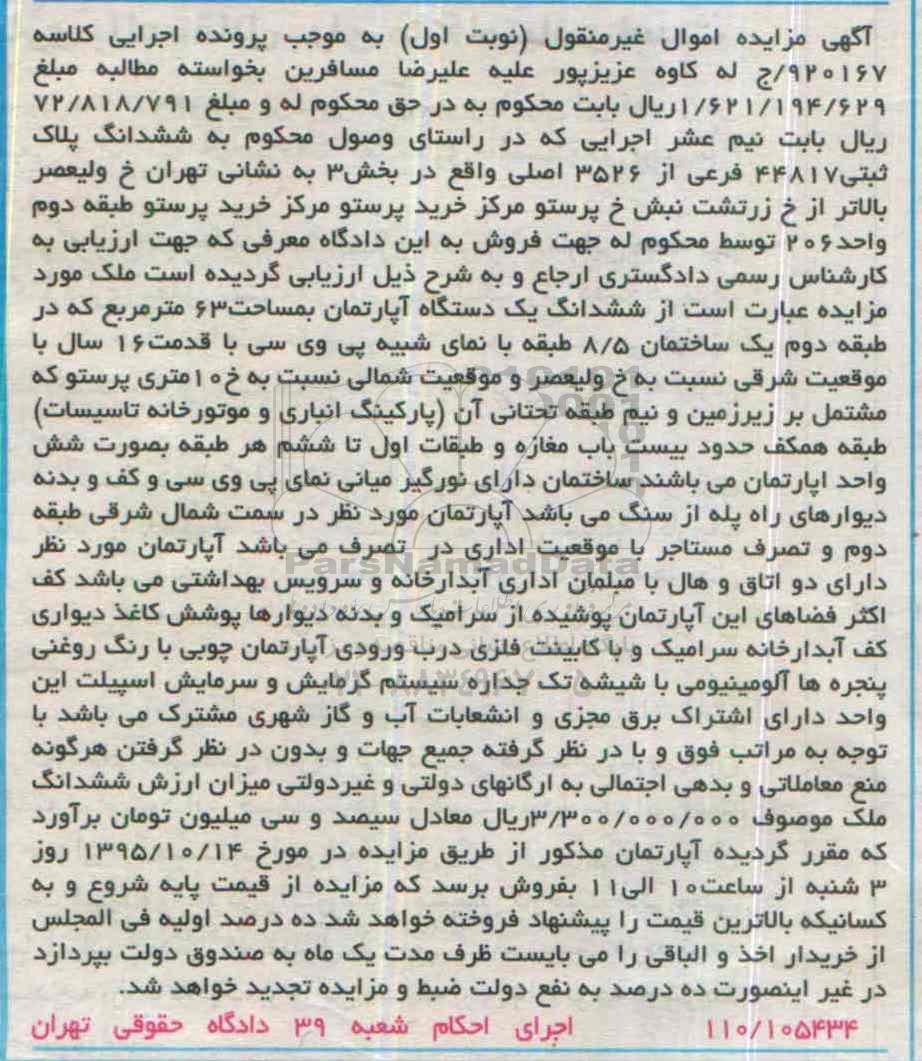 آگهی مزایده اموال غیرمنقول (نوبت اول) به موجب پرونده اجرایی کلاسه
۹۲۰۱۶۷/ج له کاوه عزیزپور علیه علیرضا مسافرین بخواسته مطالبه مبلغ
۱/۶۲۱/۱۹۴/۶۲۹ریال بابت محکوم به در حق محکوم له و مبلغ ۷۲/۸۱۸/۷۹۱
ریال بابت نیم عشر اجرایی که در راستای وصول محکوم به ششدانگ پلاک
ثبتی۴۴۸۱۷ فرعی از ۳۵۲۶ اصلی واقع در بخش۳ به نشانی تهران خ ولیعصر
بالاتر از خ زرتشت نبش خ پرستو مرکز خرید پرستو مرکز خرید پرستو طبقه دوم
واحد۲۰۶ توسط محکوم له جهت فروش به این دادگاه معرفی که جهت ارزیابی به
کارشناس رسمی دادگستری ارجاع و به شرح ذیل ارزیابی گردیده است ملک مورد
مزایده عبارت است از ششدانگ یک دستگاه آپارتمان بمساحت۶۳ مترمربع که در
طبقه دوم یک ساختمان ۸/۵ طبقه با نمای شبیه پی وی سی با قدمت۱۶ سال با
موقعیت شرقی نسبت به خ ولیعصر و موقعیت شمالی نسبت به خ۱۰متری پرستو که
مشتمل بر زیرزمین و نیم طبقه تحتانی آن (پارکینگ انباری و موتورخانه تاسیسات)
طبقه همکف حدود بیست باب مغازه و طبقات اول تا ششم هر طبقه بصورت شش
واحد اپارتمان می باشند ساختمان دارای نورگیر میانی نمای پی وی سی و کف و بدنه
دیوارهای راه پله از سنگ می باشد آپارتمان مورد نظر در سمت شمال شرقی طبقه
دوم و تصرف مستاجر با موقعیت اداری در تصرف می باشد آپارتمان مورد نظر
دارای دو اتاق و هال با مبلمان اداری آبدارخانه و سرویس بهداشتی می باشد کف
اکثر فضاهای این آپارتمان پوشیده از سرامیک و بدنه دیوارها پوشش کاغذ دیواری
کف آبدارخانه سرامیک و با کابینت فلزی درب ورودی آپارتمان چوبی با رنگ روغنی
پنجره ها آلومینیومی با شیشه تک جداره سیستم گرمایش و سرمایش اسپیلت این
واحد دارای اشتراک برق مجزی و انشعابات آب و گاز شهری مشترک می باشد با
توجه به مراتب فوق و با در نظر گرفته جمیع جهات و بدون در نظر گرفتن هرگونه
منع معاملاتی و بدهی اجتمالی به ارگانهای دولتی و غیردولتی میزان ارزش ششدانگ
ملک موصوف ۳/۳۰۰/۰۰۰/۰۰۰ریال معادل سیصد و سی میلیون تومان برآورد
که مقرر گردیده آپارتمان مذکور از طریق مزایده در مورخ ۱۳۹۵/۱۰/۱۴ روز
۳ شنبه از ساعت۱۰ الی۱۱ بفروش برسد که مزایده از قیمت پایه شروع و به
کسانیکه بالاترین قیمت را پیشنهاد فروخته خواهد شد ده درصد اولیه فی المجلس
از خریدار اخذ و الباقی را می بایست ظرف مدت یک ماه به صندوق دولت بپردازد
در غیر اینصورت ده درصد به نفع دولت ضبط و مزایده تجدید خواهد شد.
۱۱۰/۱۰۵۴۳۴ اجرای احکام شعبه ۳۹ دادگاه حقوقی تهران
ParsNamadData